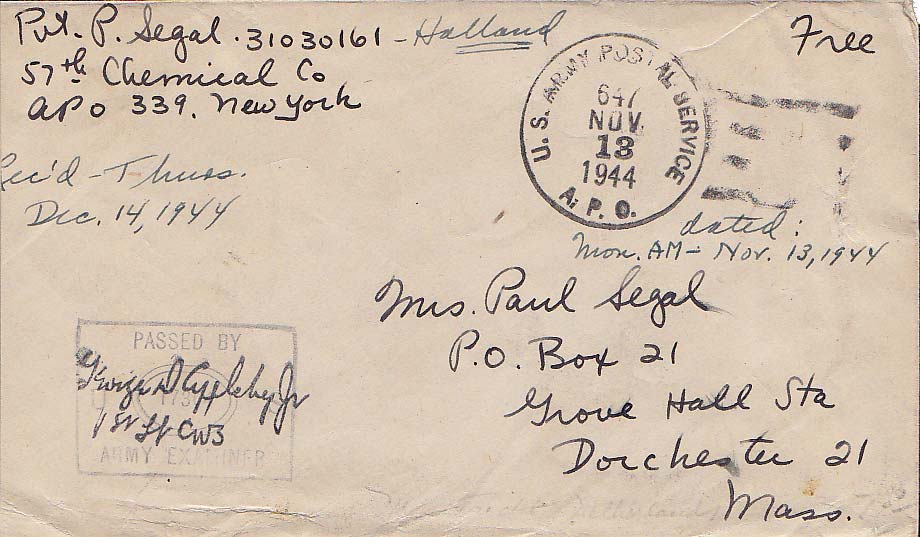 Pvt. P. Segal. 31030161 - Holland
57th Chemical Co
APO 339. New York
Free
U.S. ARMY POSTAL SERVICE
647
NOV
13
1944
A.P.O.
Rec'd - Thurs.
Dec. 14, 1944
dated:
Mon. AM - Nov. 13, 1944
Mrs. Paul Segal
P.O. Box 21
Grove Hall Sta
Dorchester 21
Mass.
PASSED BY
George D Appleby Jr
1st Lt CWS
ARMY EXAMINER